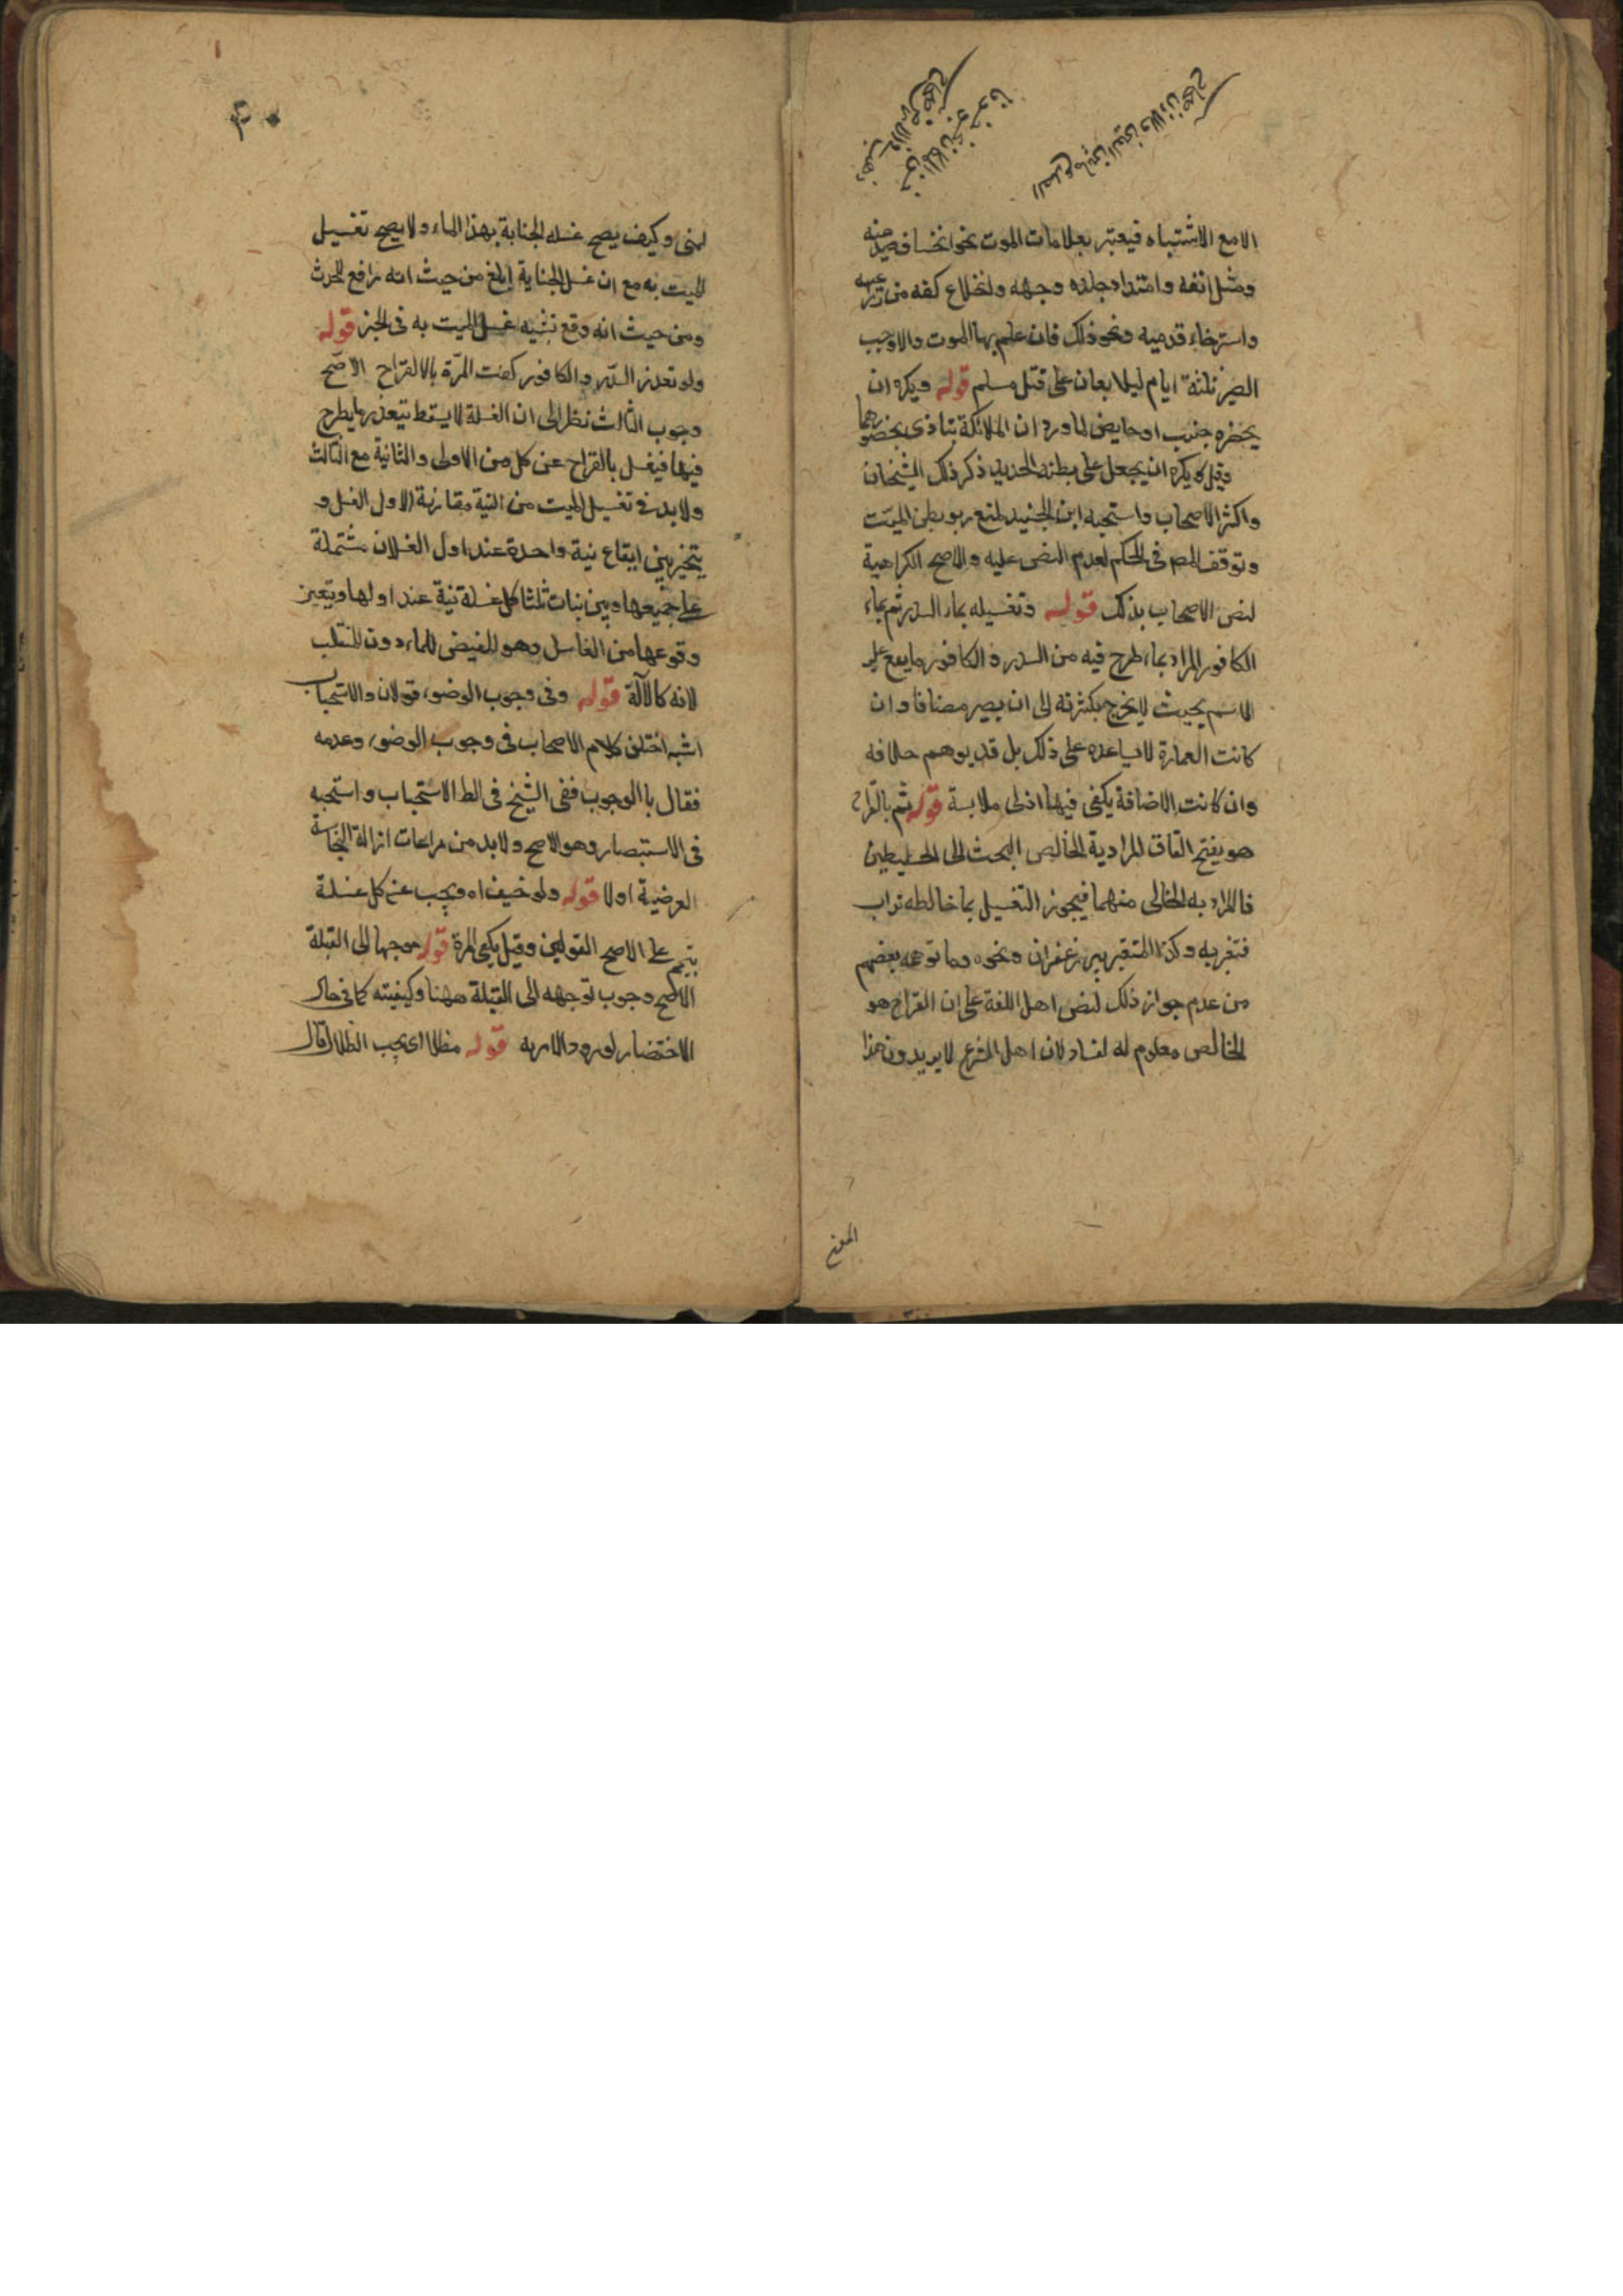 الا مع الاشتباه فيعتبر بعلامات الموت نحو انخساف صدغيه
وميل انفه وامتداد جلده وجهه وانخلاع كفه من ذراعيه
واسترخاء قدميه ونحو ذلك فان علم بها الموت والا وجب
الصبر ثلثة ايام ليلا يعان على قتل مسلم قوله ويكره ان
يحضره جنب او حايض لما ورد ان الملائكة تتاذى بحضورهما
وقيل يكره ان يجعل على بطنه الحديد ذكر ذلك الشيخان
واكثر الاصحاب واستحبه ابن الجنيد لمنع ربو بطن الميت
وتوقف المص فى الحكم لعدم النص عليه والاصح الكراهية
لنص الاصحاب بذلك قوله وتغسيله بماء السدر ثم بماء
الكافور المراد بماء طرح فيه من السدر والكافور ما يقع عليه
الاسم بحيث لا يخرج بكثرته الى ان يصير مضافا وان
كانت العبارة لا تساعده على ذلك بل قد يوهم خلافه
وان كانت الاضافة يكفى فيها ادنى ملابسة قوله ثم بالقراح
هو بفتح القاف المراد به الخالص البحث الى الخليطين
فالمراد به الخالى منهما فيجوز التغسيل بما خالطه تراب
فتغير به وكذا المتغير بيسر زعفران ونحوه وما توهمه بعضهم
من عدم جواز ذلك لنص اهل اللغة على ان القراح هو
الخالص معلوم له لفساد لان اهل الشرع لا يريدون هذا
لمنى وكيف يصح غسله الجنابة بهذا الماء ولا يصح تغسيل
الميت به مع ان غسل الجنابة ابلغ من حيث انه رافع للحدث
ومن حيث انه وقع تشبيه غسل الميت به فى الخبر قوله
ولو تعذر السدر والكافور كفت المرة بالالقراح الاصح
وجوب الثالث نظر الى ان الغسلة لا يسقط بتعذر ما يطرح
فيها فيغسل بالقراح عن كل من الاولى والثانية مع الثالث
ولا بد فى تغسيل الميت من النية مقارنة لاول الغسل و
يتخير بين ايقاع نية واحدة عند اول الغسلات مشتملة
على جميعها وبين نيات ثلثا كل غسلة نية عند اولها ويتعين
وقوعها من الغاسل وهو المفيض للماء دون المقلب
لانه كالالة قوله وفى وجوب الوضوء قولان والاستحباب
اشبه اختلف كلام الاصحاب فى وجوب الوضوء وعدمه
فقال باالوجوب ففى الشيخ فى الط الاستحباب واستحبه
فى الاستبصار وهو الاصح ولا بد من مراعات ازالة النجاسة
العرضية اولا قوله ولو خيف اه ويجب عن كل غسلة
تيمم على الاصح القولين وقيل يكفى المرة قوله موجها الى القبلة
الاصح وجوب توجهه الى القبلة ههنا وكيفيته كما فى حال
الاختضار لورود الامر به قوله مظللا اى يجب الظلال قال